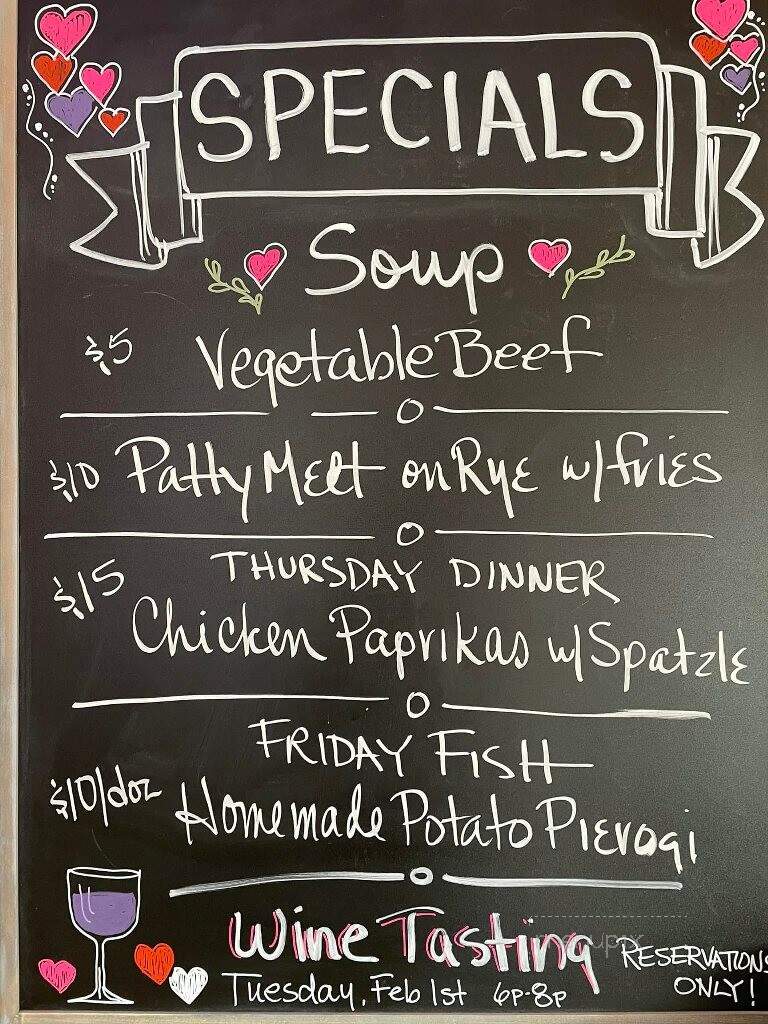 SPECIALS
Soup
$5 Vegetable Beef
$10 Patty Melt on Rye w/fries
THURSDAY DINNER
$15 Chicken Paprikas w/Spatzle
FRIDAY FISH
$10/doz Homemade Potato Pierogi
Wine Tasting
RESERVATIONS ONLY!
Tuesday, Feb 1st 6p-8p
menupix